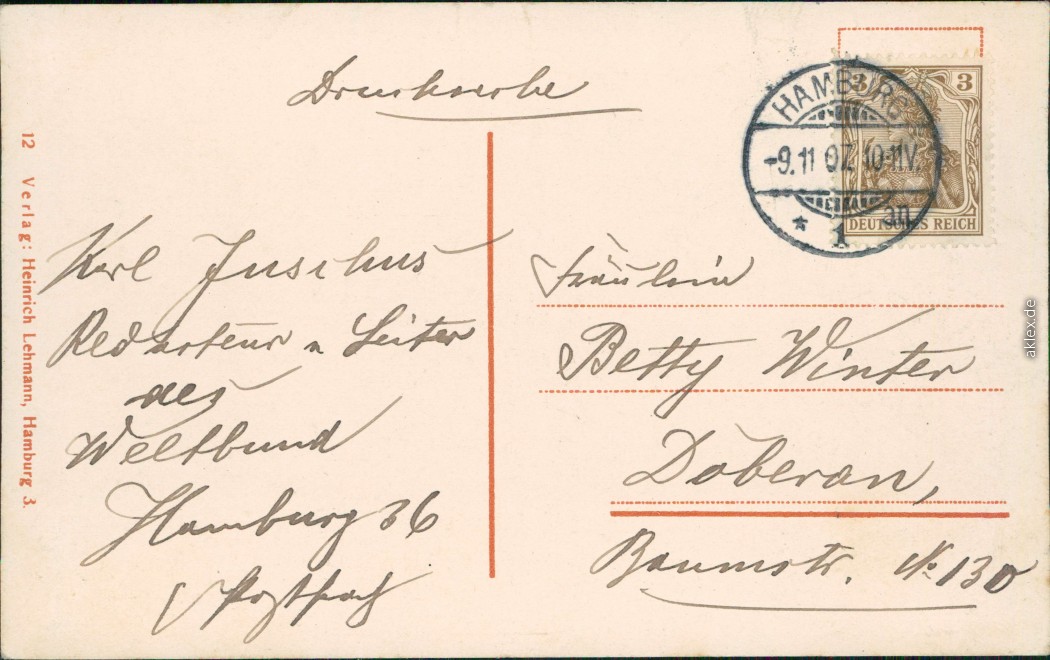 Drucksache
HAMBURG
-9.11 07. 10-11V.
* 1
3 3
DEUTSCHES REICH
12 Verlag: Heinrich Lehmann, Hamburg 3.
Karl Juschus
Redakteur u Leiter
des
Weltbund
Hamburg 36
Postfach
Fräulein
Betty Winter
Doberan,
Baumstr. No 130
aklex.de